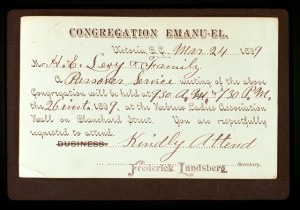 CONGREGATION EMANU-EL.
Victoria, B.C. Mar 24 1889
Mr H. E. Levy & Family
A Passover Service meeting of the above
Congregation will be held at 9 30 A.M. & 7/30 P.M.
the 26 inst 1889, at the Hebrew Ladies Association
Hall on Blanchard Street. You are respectfully
requested to attend.
BUSINESS: Kindly Attend
Frederick Landsberg, Secretary.